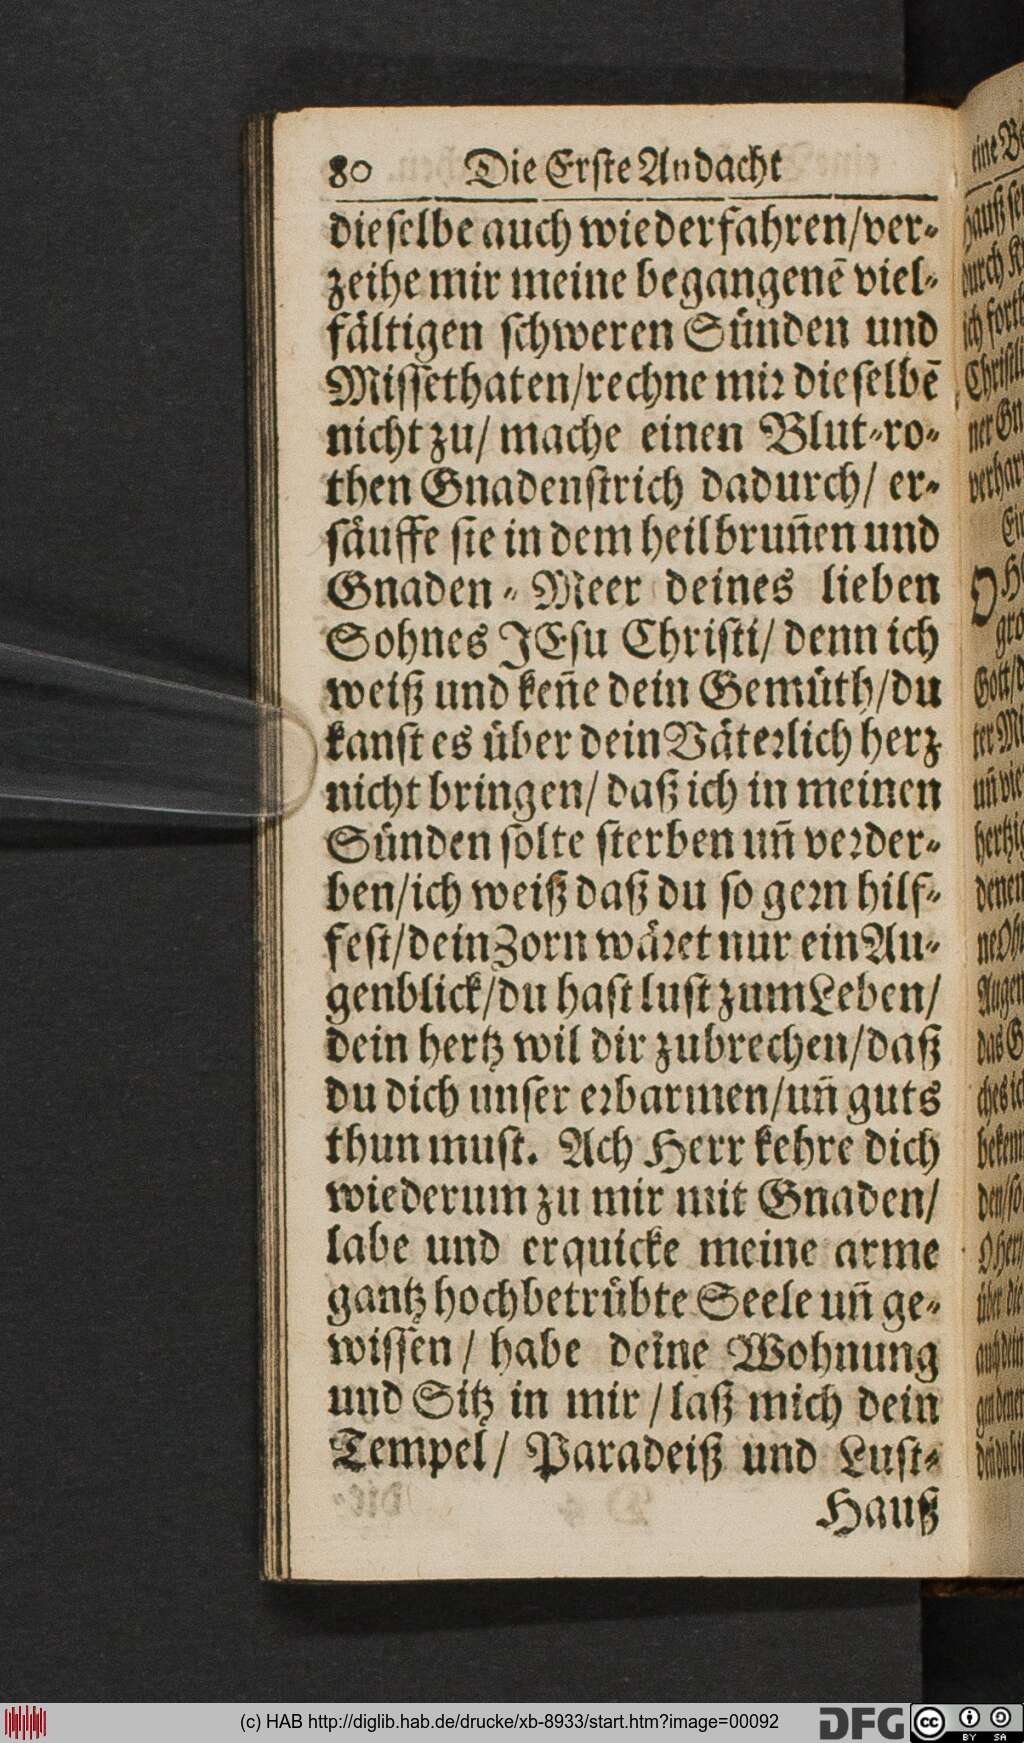 80 Die Erste Andacht
dieselbe auch wiederfahren/ver-
zeihe mir meine begangenē viel-
fältigen schweren Sünden und
Missethaten/rechne mir dieselbē
nicht zu/ mache einen Blut-ro-
then Gnadenstrich dadurch/ er-
säuffe sie in dem heilbrun̄en und
Gnaden-Meer deines lieben
Sohnes JEsu Christi/ denn ich
weiß und ken̄e dein Gemüth/du
kanst es über dein Väterlich herz
nicht bringen/ daß ich in meinen
Sünden solte sterben un̄ verder-
ben/ich weiß daß du so gern hilf-
fest/dein Zorn wäret nur ein Au-
genblick/du hast lust zum Leben/
dein hertz wil dir zubrechen/daß
du dich unser erbarmen/un̄ guts
thun must. Ach Herr kehre dich
wiederum zu mir mit Gnaden/
labe und erquicke meine arme
gantz hochbetrübte Seele un̄ ge-
wissen/ habe deine Wohnung
und Sitz in mir/laß mich dein
Tempel/ Paradeiß und Lust-
Hauß
(c) HAB http://diglib.hab.de/drucke/xb-8933/start.htm?image=00092
DFG
cc BY SA